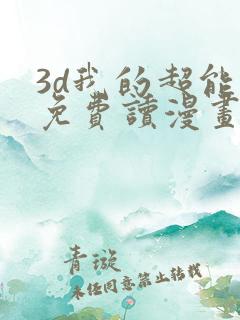 3d我的超能
免費讀漫畫
青璇
未任同意禁止转载